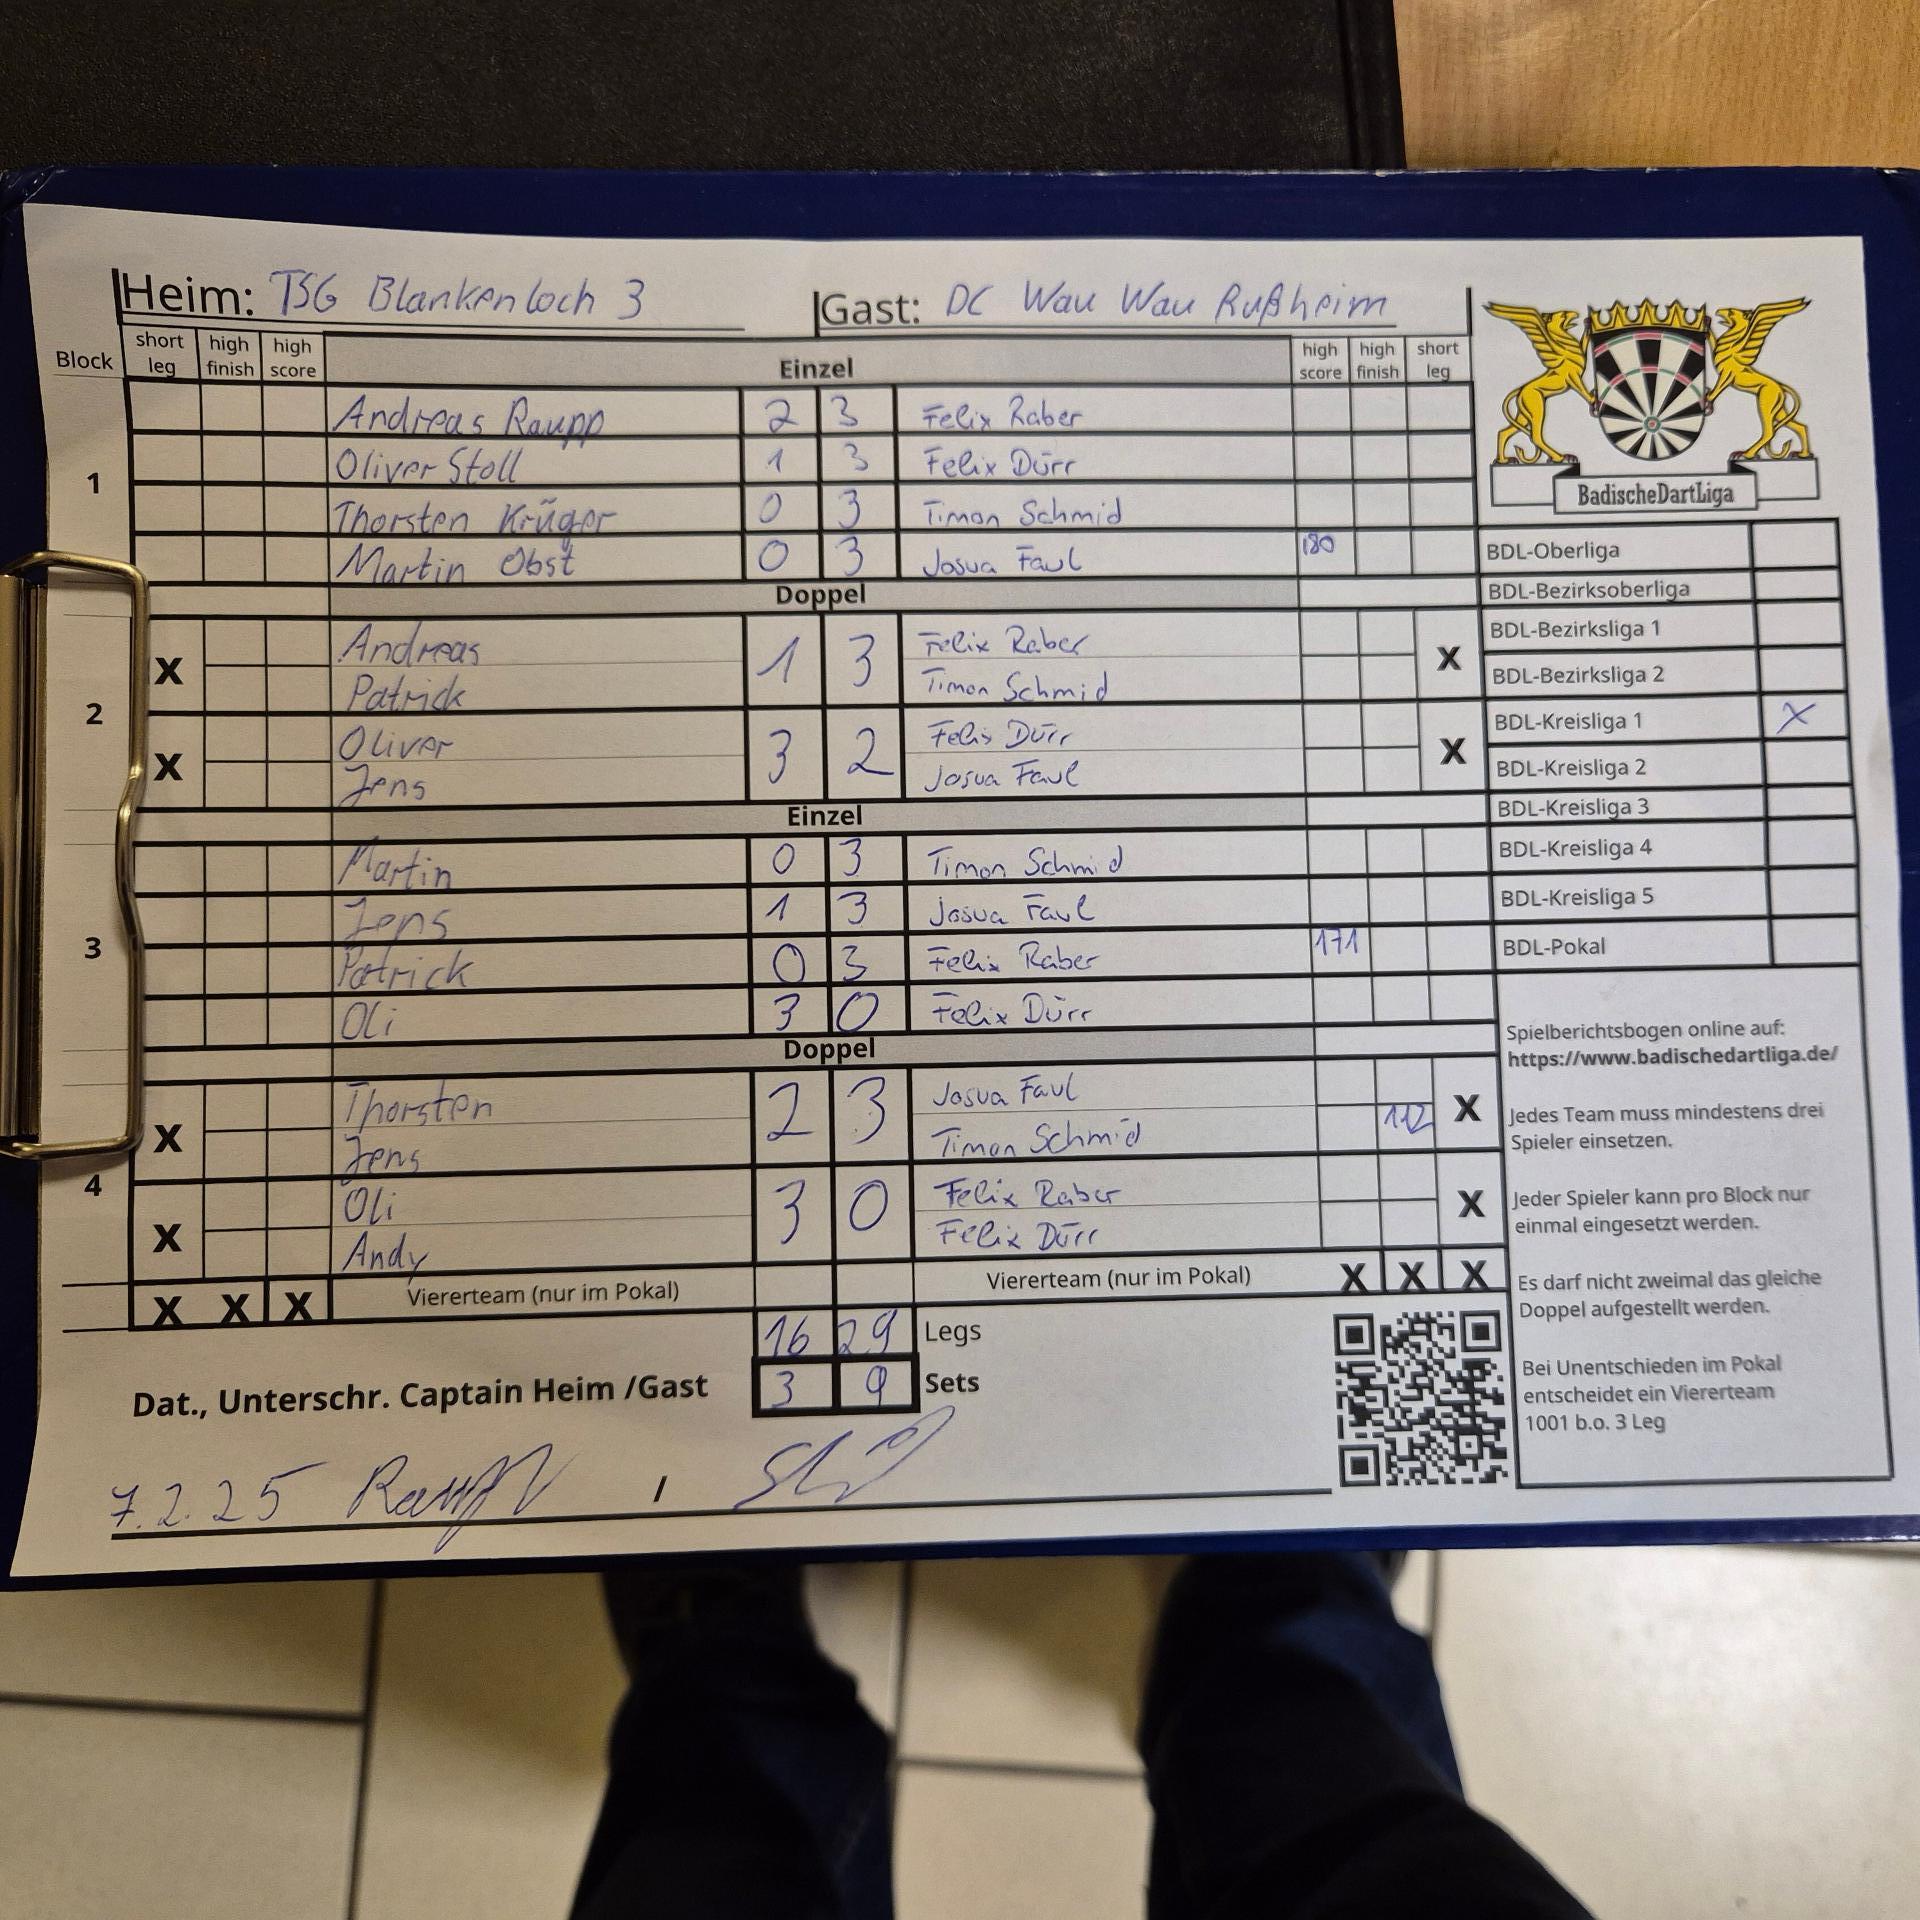 Heim: TSG Blankenloch 3 Gast: DC Wau Wau Rußheim
Block short leg high finish high score Einzel high score high finish short leg
1
Andreas Raupp 2 3 Felix Raber
Oliver Stoll 1 3 Felix Dürr
Thorsten Krüger 0 3 Timon Schmid
Martin Obst 0 3 Josua Faul 180
Doppel
2
X Andreas 1 3 Felix Raber X
Patrick Timon Schmid
X Oliver 3 2 Felix Dürr X
Jens Josua Faul
Einzel
3
Martin 0 3 Timon Schmid
Jens 1 3 Josua Faul
Patrick 0 3 Felix Raber 171
Oli 3 0 Felix Dürr
Doppel
4
X Thorsten 2 3 Josua Faul X
Jens Timon Schmid 112
X Oli 3 0 Felix Raber X
Andy Felix Dürr
X X X Viererteam (nur im Pokal) Viererteam (nur im Pokal) X X X
16 29 Legs
3 9 Sets
Dat., Unterschr. Captain Heim /Gast
7.2.25 Raupp /
BadischeDartLiga
BDL-Oberliga
BDL-Bezirksoberliga
BDL-Bezirksliga 1
BDL-Bezirksliga 2
BDL-Kreisliga 1 X
BDL-Kreisliga 2
BDL-Kreisliga 3
BDL-Kreisliga 4
BDL-Kreisliga 5
BDL-Pokal
Spielberichtsbogen online auf:
https://www.badischedartliga.de/
Jedes Team muss mindestens drei
Spieler einsetzen.
Jeder Spieler kann pro Block nur
einmal eingesetzt werden.
Es darf nicht zweimal das gleiche
Doppel aufgestellt werden.
Bei Unentschieden im Pokal
entscheidet ein Viererteam
1001 b.o. 3 Leg